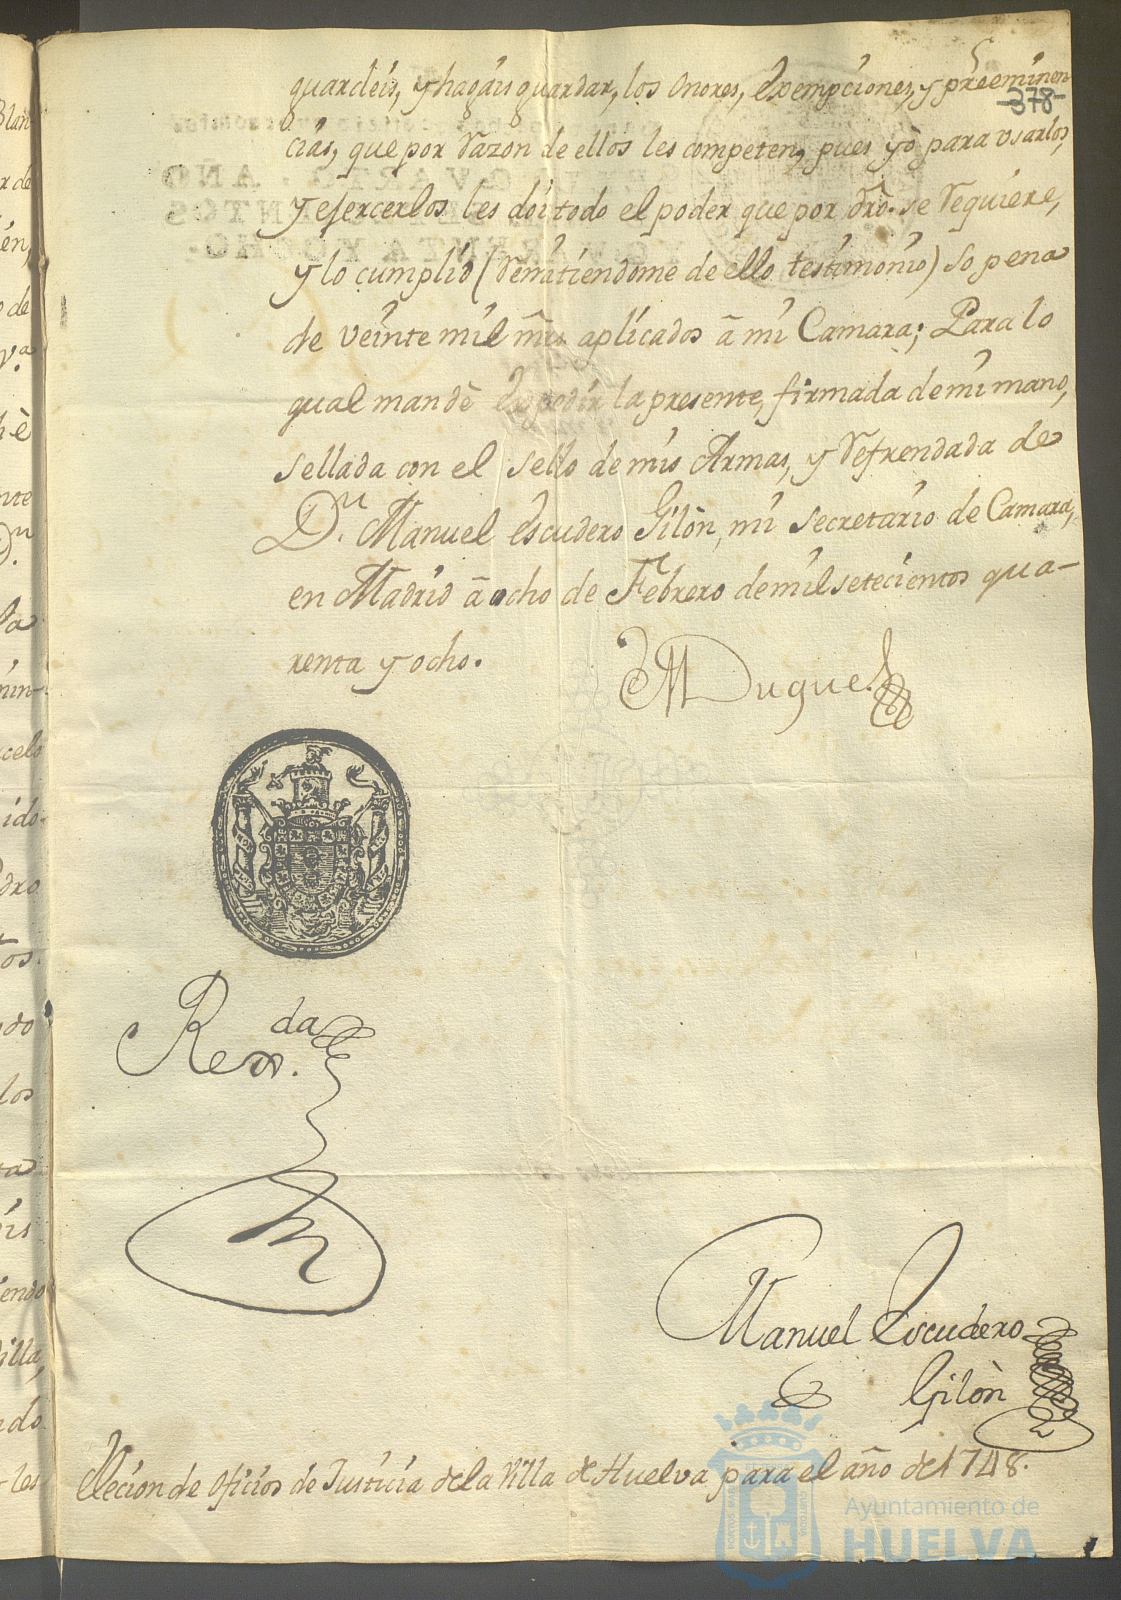 -378-
guardeis, y hagais guardar, los Onores, Exempciones, y preeminen
cias, que por razon de ellos les competen, pues yò para usarlos,
y esercerlos les doi todo el poder que por dro. se requiere,
y lo cumplid (remitiendome de ello testimonio) so pena
de veinte mil mrs aplicados â mi Camara; Para lo
qual mandè Expedir la presente, firmada de mi mano,
sellada con el sello de mis Armas, y refrendada de
Dn. Manuel Escudero Gilòn, mi Secretario de Camara,
en Madrid â ocho de Febrero de mil setecientos qua-
renta y ocho.
Duque
Manuel Escudero
Gilòn
Elecion de Oficios de Justicia de la Villa de Huelva para el año de 1748.
Ayuntamiento de
HUELVA